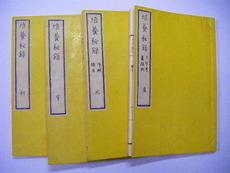 培養秘録
貞
培養秘録
元
培養秘録
亨
培養秘録
利